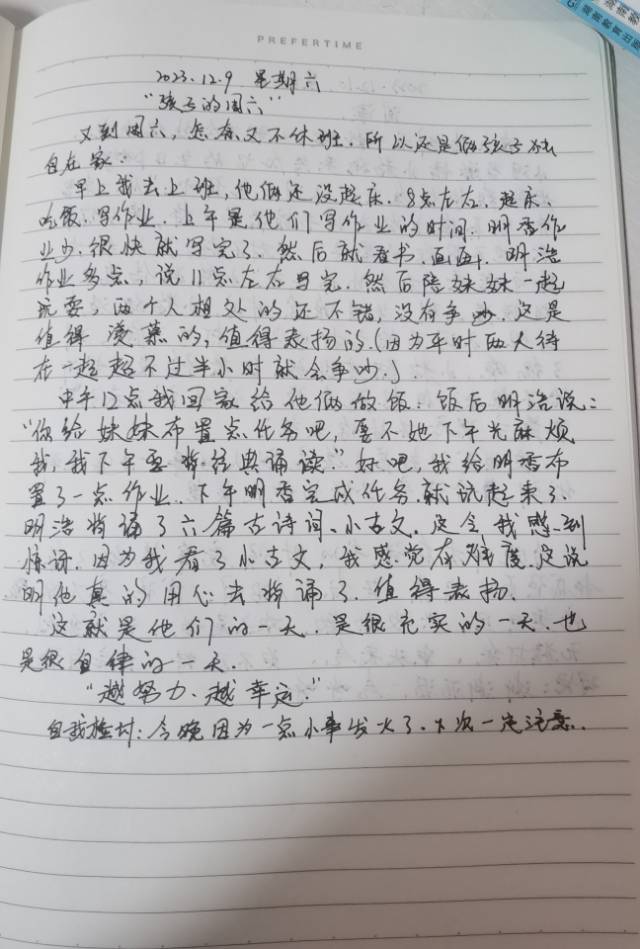 PREFERTIME
2023.12.9 星期六
"孩子的周六"
又到周六，怎奈又不休班，所以还是俩孩子独
自在家.
早上我去上班，他俩还没起床.8点左右.起床、
吃饭.写作业.上午是他们写作业的时间.明香作
业少.很快就写完了.然后就看书、画画.明浩
作业多点，说11点左右写完.然后陪妹妹一起
玩耍，两个人相处的还不错，没有争吵.这是
值得羡慕的，值得表扬的.(因为平时两人待
在一起超不过半小时就会争吵.)
中午12点我回家给他俩做饭.饭后明浩说：
"你给妹妹布置点任务吧，要不她下午光麻烦
我，我下午要背经典诵读."好吧，我给明香布
置了一点作业.下午明香完成任务.就玩起来了.
明浩背诵了六篇古诗词、小古文.这令我感到
惊讶.因为我看了小古文，我感觉有难度.这说
明他真的用心去背诵了.值得表扬.
这就是他们的一天.是很充实的一天.也
是很自律的一天.
"越努力、越幸运."
自我检讨：今晚因为一点小事发火了.下次一定注意.